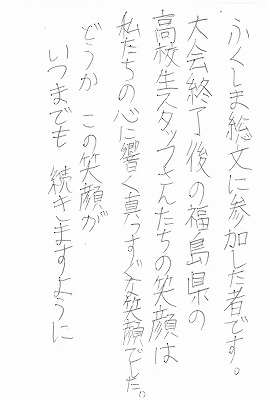 ふくしま総文に参加した者です。
大会終了後の福島県の
高校生スタッフさんたちの笑顔は
私たちの心に響く真っすぐな笑顔でした。
どうか この笑顔が
いつまでも 続きますように